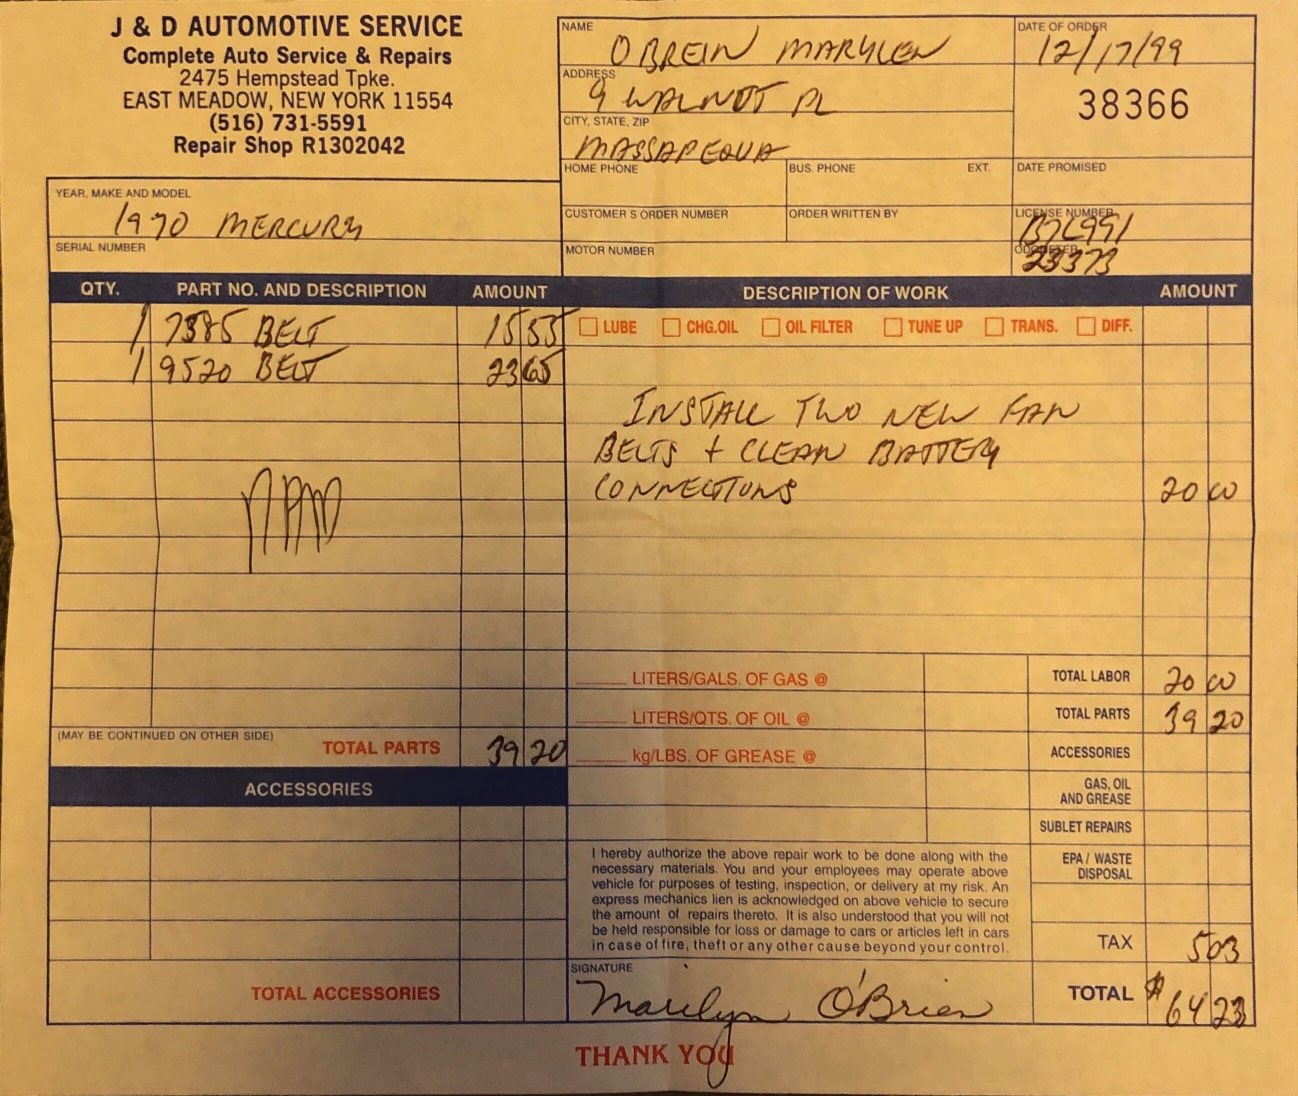 J & D AUTOMOTIVE SERVICE
Complete Auto Service & Repairs
2475 Hempstead Tpke.
EAST MEADOW, NEW YORK 11554
(516) 731-5591
Repair Shop R1302042
NAME
OBREIN MARYLEN
DATE OF ORDER
12/17/99
ADDRESS
9 WALNUT PL
38366
CITY, STATE, ZIP
MASSAPEQUA
HOME PHONE BUS. PHONE EXT. DATE PROMISED
YEAR, MAKE AND MODEL
1970 MERCURY
CUSTOMER S ORDER NUMBER ORDER WRITTEN BY LICENSE NUMBER
SERIAL NUMBER
MOTOR NUMBER
ODOMETER
23373
QTY. PART NO. AND DESCRIPTION AMOUNT DESCRIPTION OF WORK AMOUNT
1 7385 BELT 15 55
LUBE CHG.OIL OIL FILTER TUNE UP TRANS. DIFF.
1 9520 BELT 23 65
INSTALL TWO NEW FAN
BELTS + CLEAN BATTERY
CONNECTIONS 20 00
LITERS/GALS. OF GAS @ TOTAL LABOR 20 00
LITERS/QTS. OF OIL @ TOTAL PARTS 39 20
(MAY BE CONTINUED ON OTHER SIDE) TOTAL PARTS 39 20
kg/LBS. OF GREASE @ ACCESSORIES
ACCESSORIES
GAS, OIL
AND GREASE
SUBLET REPAIRS
EPA / WASTE
DISPOSAL
I hereby authorize the above repair work to be done along with the
necessary materials. You and your employees may operate above
vehicle for purposes of testing, inspection, or delivery at my risk. An
express mechanics lien is acknowledged on above vehicle to secure
the amount of repairs thereto. It is also understood that you will not
be held responsible for loss or damage to cars or articles left in cars
in case of fire, theft or any other cause beyond your control.
TAX 5 03
TOTAL ACCESSORIES
SIGNATURE
Marilyn O'Brien
TOTAL $64 23
THANK YOU